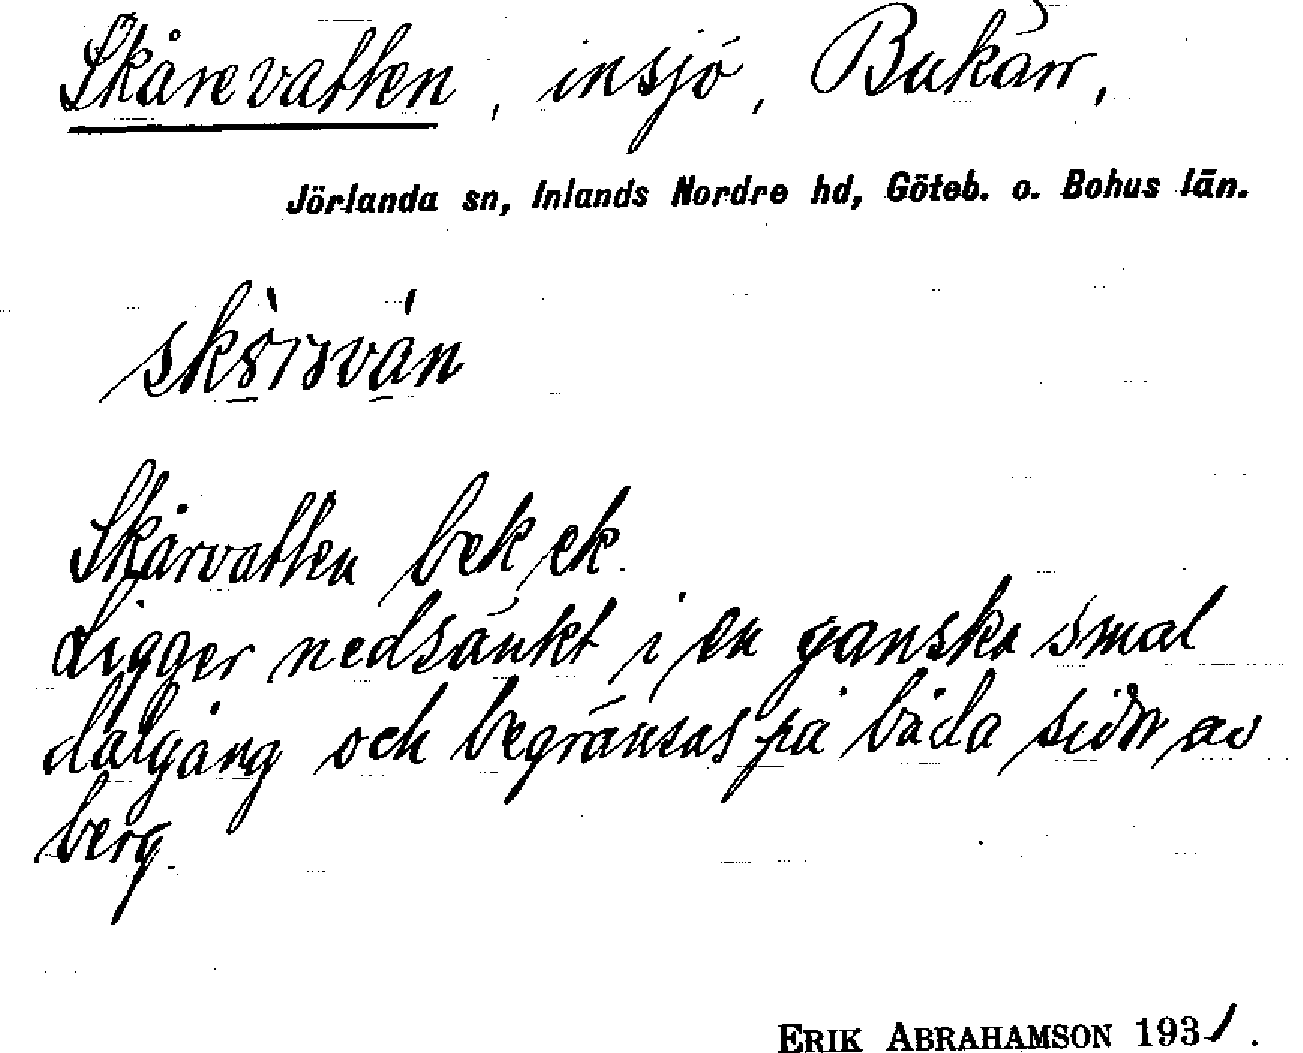 Skårevatten, insjö, Bukärr,
Jörlanda sn, Inlands Nordre hd, Göteb. o. Bohus län.
Skårvatten bek ek.
Ligger nedsänkt i en ganska smal
dalgång och begränsas på båda sidor av
berg.
ERIK ABRAHAMSON 1931.